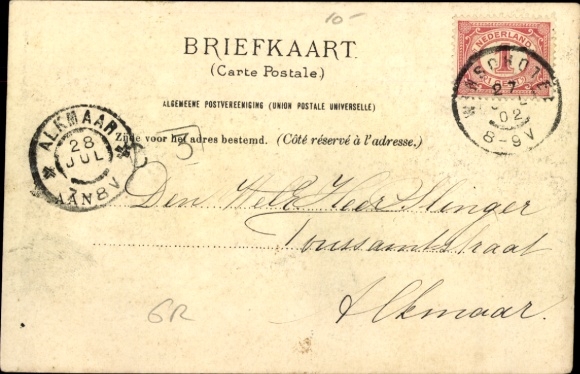 10-
BRIEFKAART.
(Carte Postale.)
ALGEMEENE POSTVEREENIGING (UNION POSTALE UNIVERSELLE)
Zijde voor het adres bestemd. (Côté réservé à l'adresse.)
NEDERLAND
1
WINSCHOTEN
27
JUL
02
8-9V
ALKMAAR
28
JUL
AAN 8 V
Den Heer
Toussaintstraat
Alkmaar.
6R